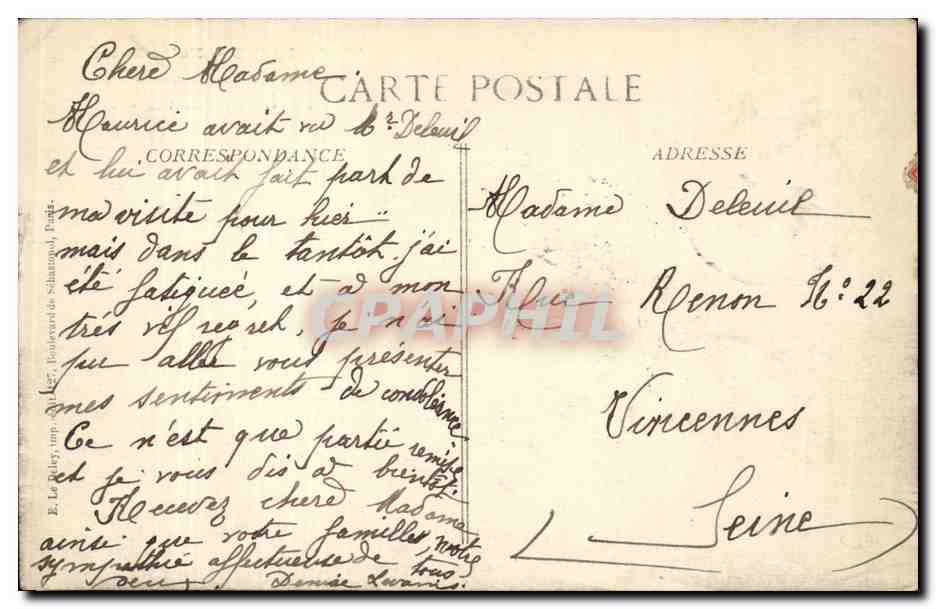 Cheré Madame.
CARTE POSTALE
Maurice avait vu Mr. Deleuil
CORRESPONDANCE
et lui avait fait part de
ma visite pour hier
mais dans le tantôt j'ai
été fatiguée, et a mon
trés vif regret, je n'ai
pu allé vous présenter
mes sentiments de condoléance
Ce n'est que partie remise
et je vous dis a bientôt.
Recevez cheré Madame
ainsi que votre familles, notre
sympathie affectueuse de tous
Denise
ADRESSE
Madame Deleuil
Rue Renon No. 22
Vincennes
Seine
E. Le Deley, imp. édit. 127, Boulevard de Sébastopol, Paris.
CPAPHIL